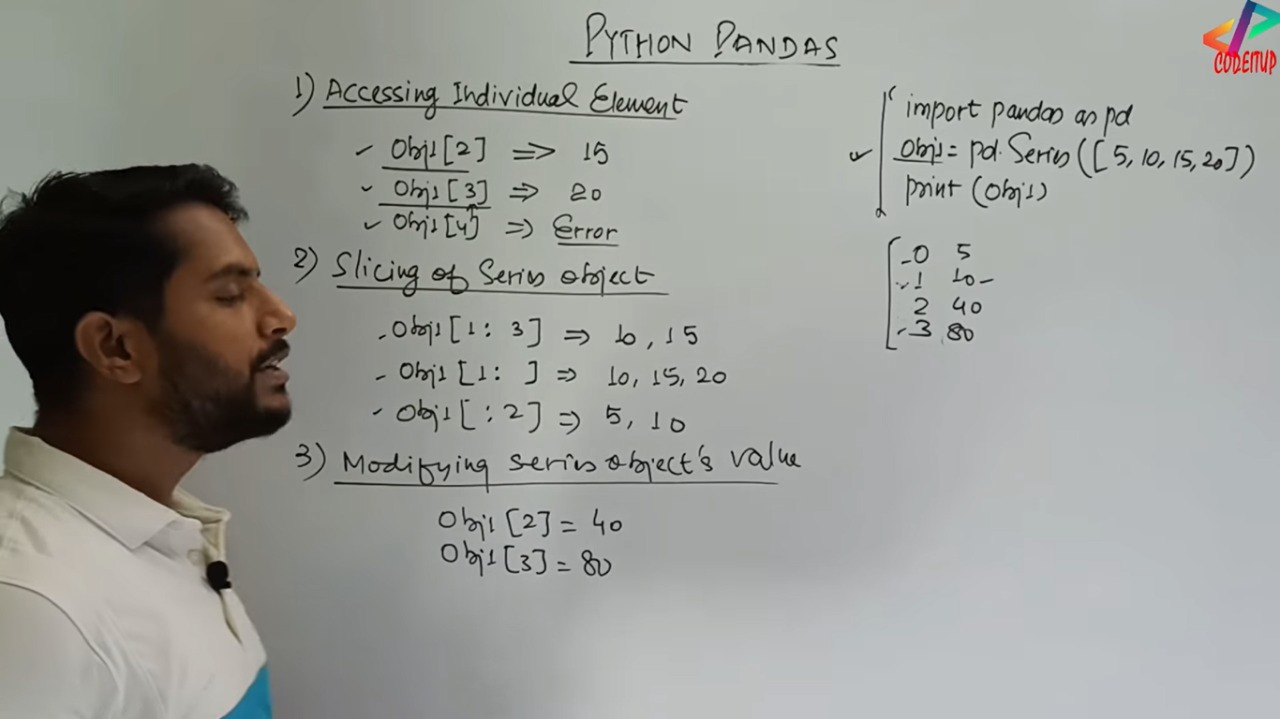 PYTHON PANDAS
1) Accessing Individual Element
Obj1[2] => 15
Obj1[3] => 20
Obj1[4] => Error
2) Slicing of Series object
Obj1[1: 3] => 10, 15
Obj1[1: ] => 10, 15, 20
Obj1[ :2] => 5, 10
3) Modifying series object's value
Obj1[2] = 40
Obj1[3] = 80
import pandas as pd
Obj1 = pd.Series([5, 10, 15, 20])
print(Obj1)
0 5
1 10
2 40
3 80
CODEITUP